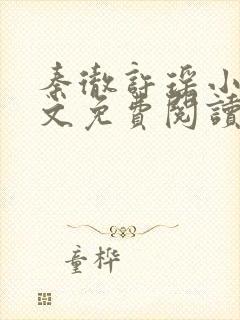 秦徹許瑤小
文免費閱讀
童樺